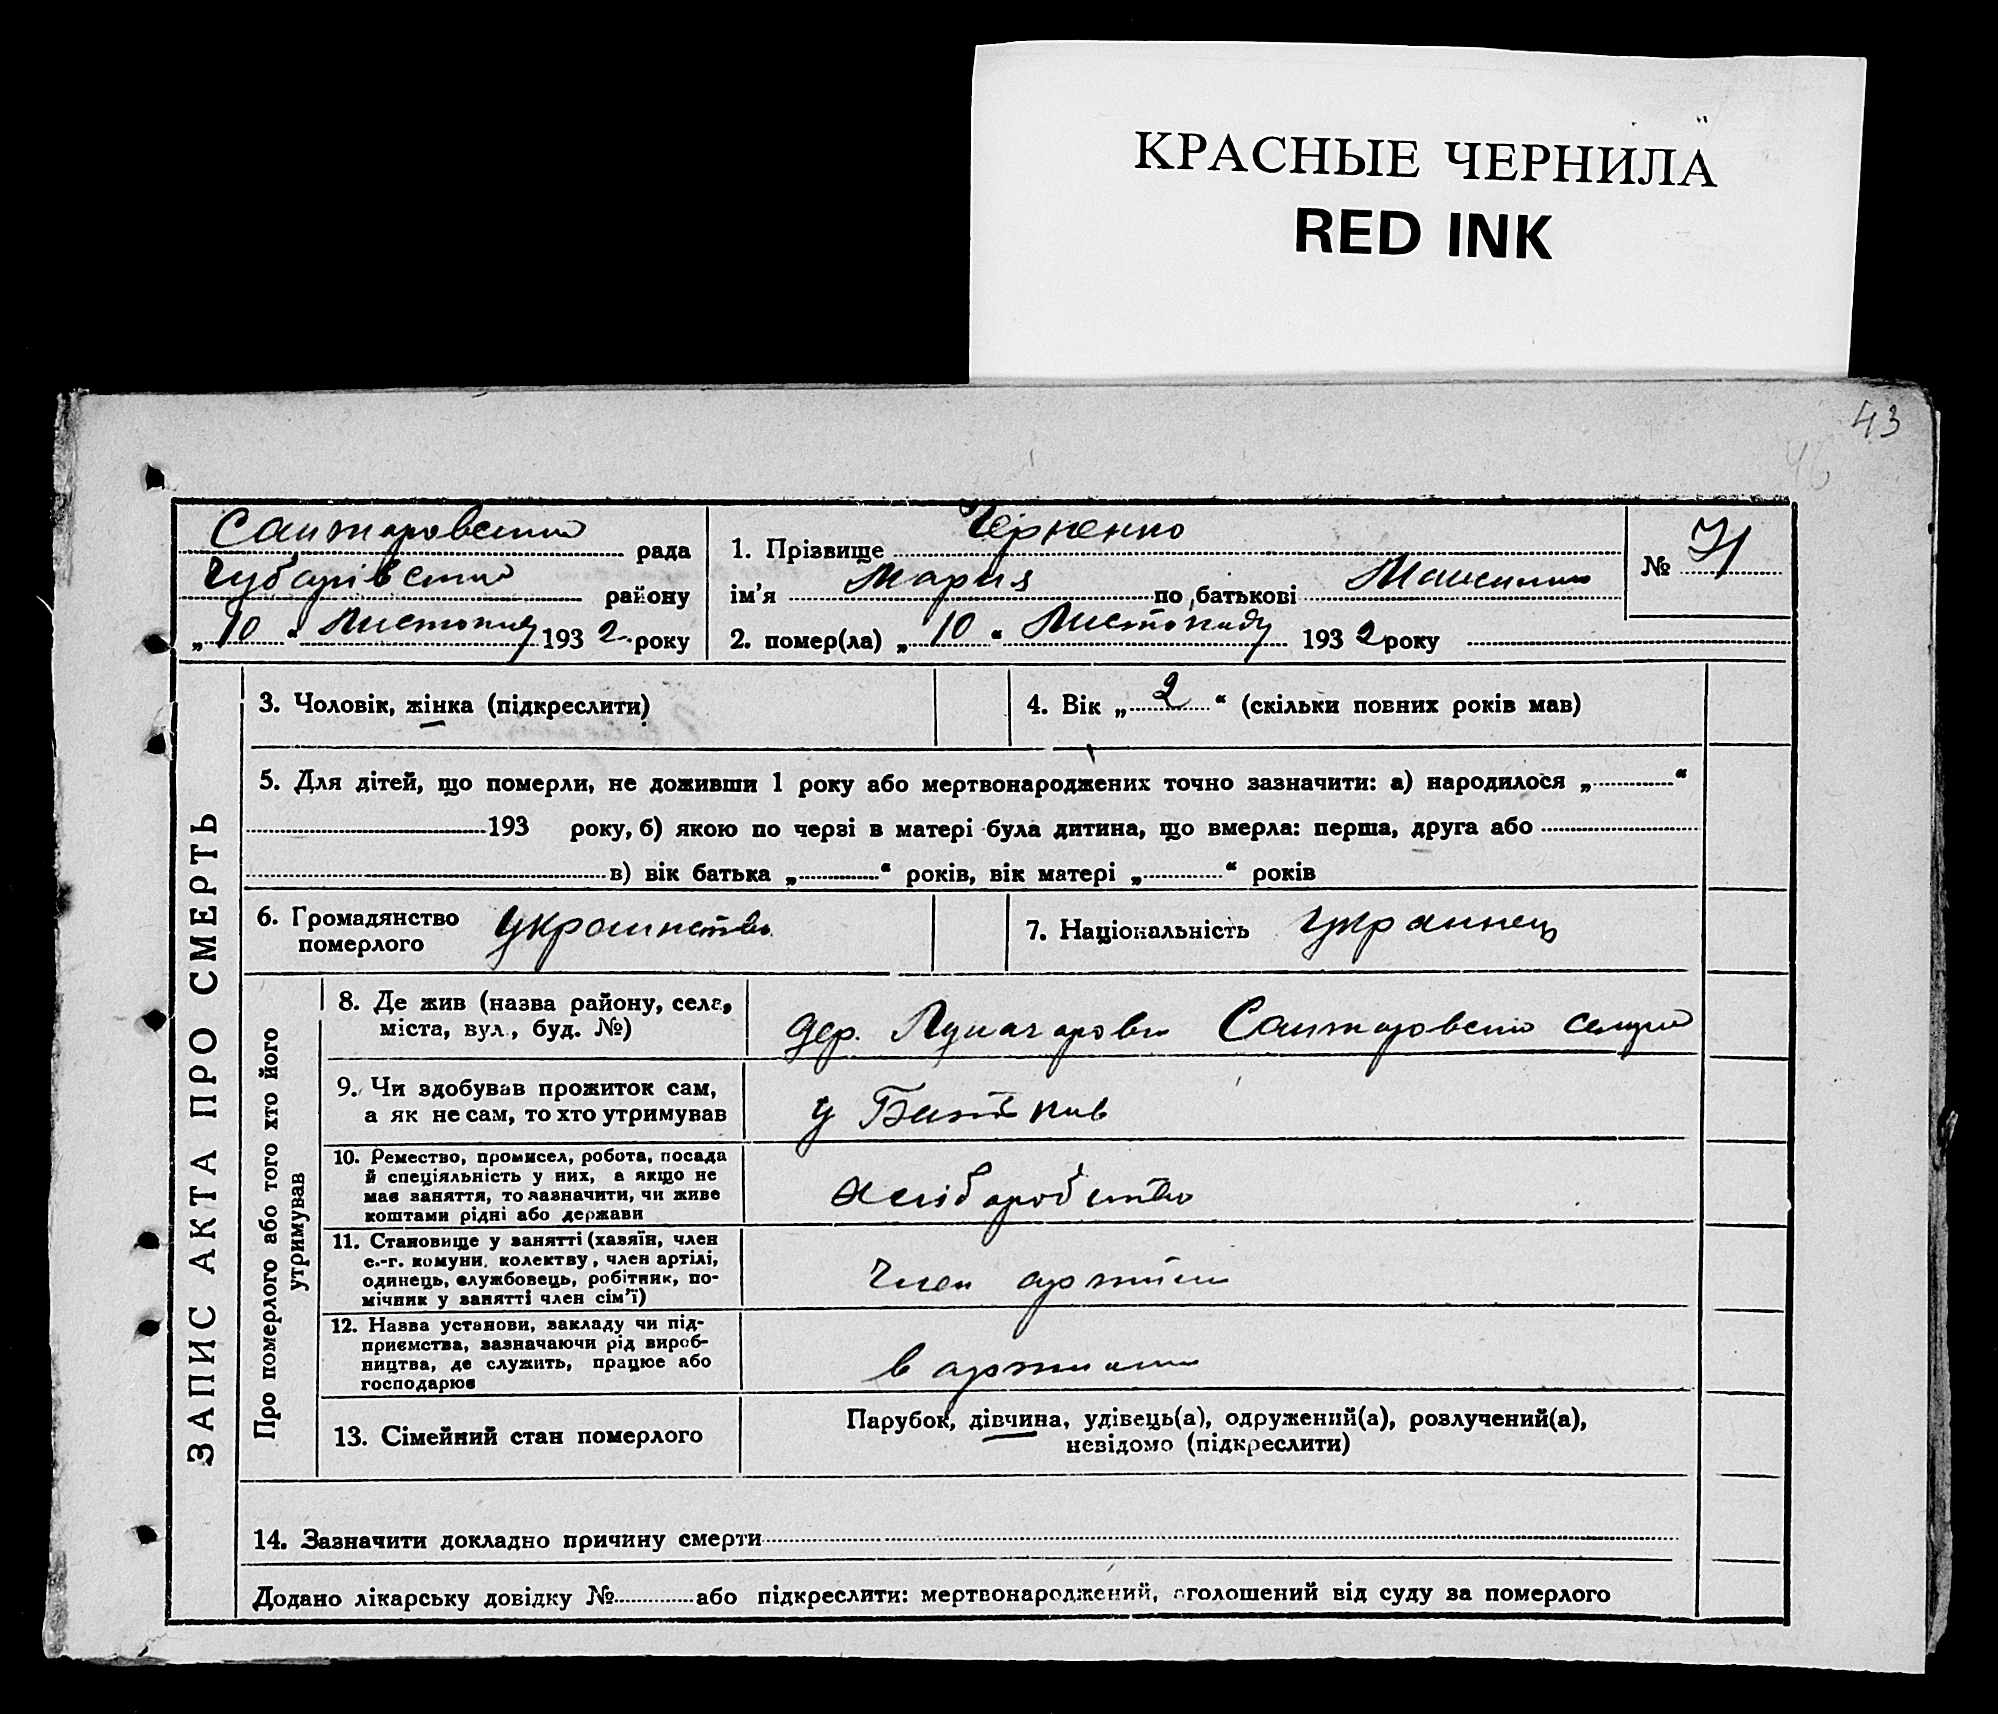 КРАСНЫЕ ЧЕРНИЛА
RED INK
43
46
рада
району
„10“ Листопад 1932 року
1. Прізвище Черненко
ім'я Мария по батькові
2. помер(ла) „10“ Листопаду 1932 року
№ 71
ЗАПИС АКТА ПРО СМЕРТЬ
3. Чоловік, жінка (підкреслити)
4. Вік „2“ (скільки повних років мав)
5. Для дітей, що померли, не доживши 1 року або мертвонароджених точно зазначити: а) народилося „ “
193 року, б) якою по черзі в матері була дитина, що вмерла: перша, друга або
в) вік батька „ “ років, вік матері „ “ років
6. Громадянство
померлого
7. Національність украинец
Про померлого або того хто його
утримував
8. Де жив (назва району, села,
міста, вул., буд. №)
дер.
9. Чи здобував прожиток сам,
а як не сам, то хто утримував
у Батьків
10. Ремество, промисел, робота, посада
й спеціяльність у них, а якщо не
має заняття, то зазначити, чи живе
коштами рідні або держави
хліборобство
11. Становище у занятті (хазяїн, член
с.-г. комуни, колектву, член артілі,
одинець, службовець, робітник, по-
мічник у занятті член сім'ї)
член артіли
12. Назва установи, закладу чи під-
приємства, зазначаючи рід вироб-
ництва, де служить, працює або
господарює
в
13. Сімейний стан померлого
Парубок, дівчина, удівець(а), одружений(а), розлучений(а),
невідомо (підкреслити)
14. Зазначити докладно причину смерти
Додано лікарську довідку № або підкреслити: мертвонароджений, оголошений від суду за померлого